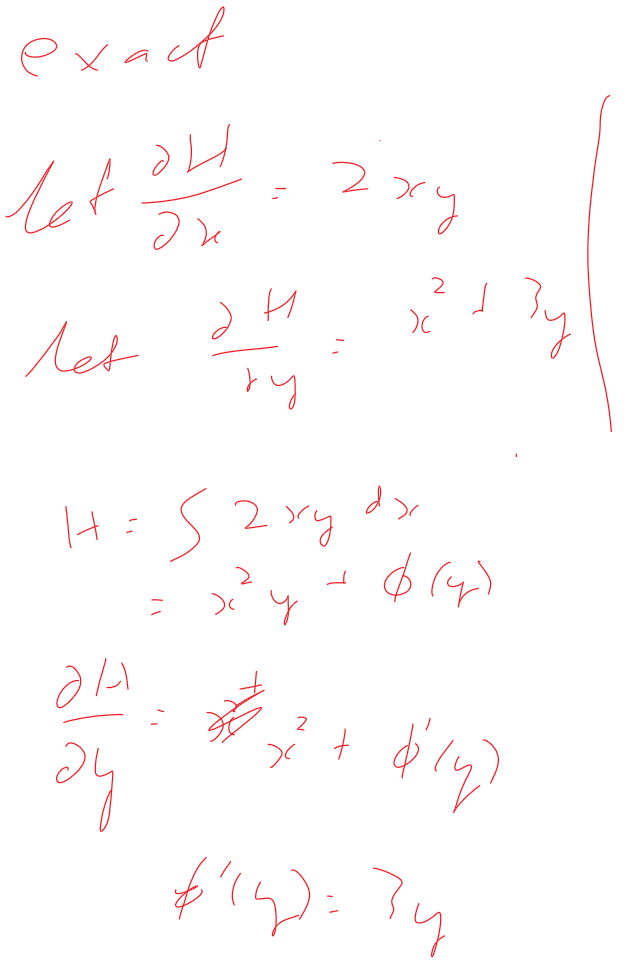 exact
let ∂H/∂x = 2xy
let ∂H/∂y = x² + 3y
H = ∫ 2xy dx
= x²y + ϕ(y)
∂H/∂y = x² + ϕ'(y)
ϕ'(y) = 3y